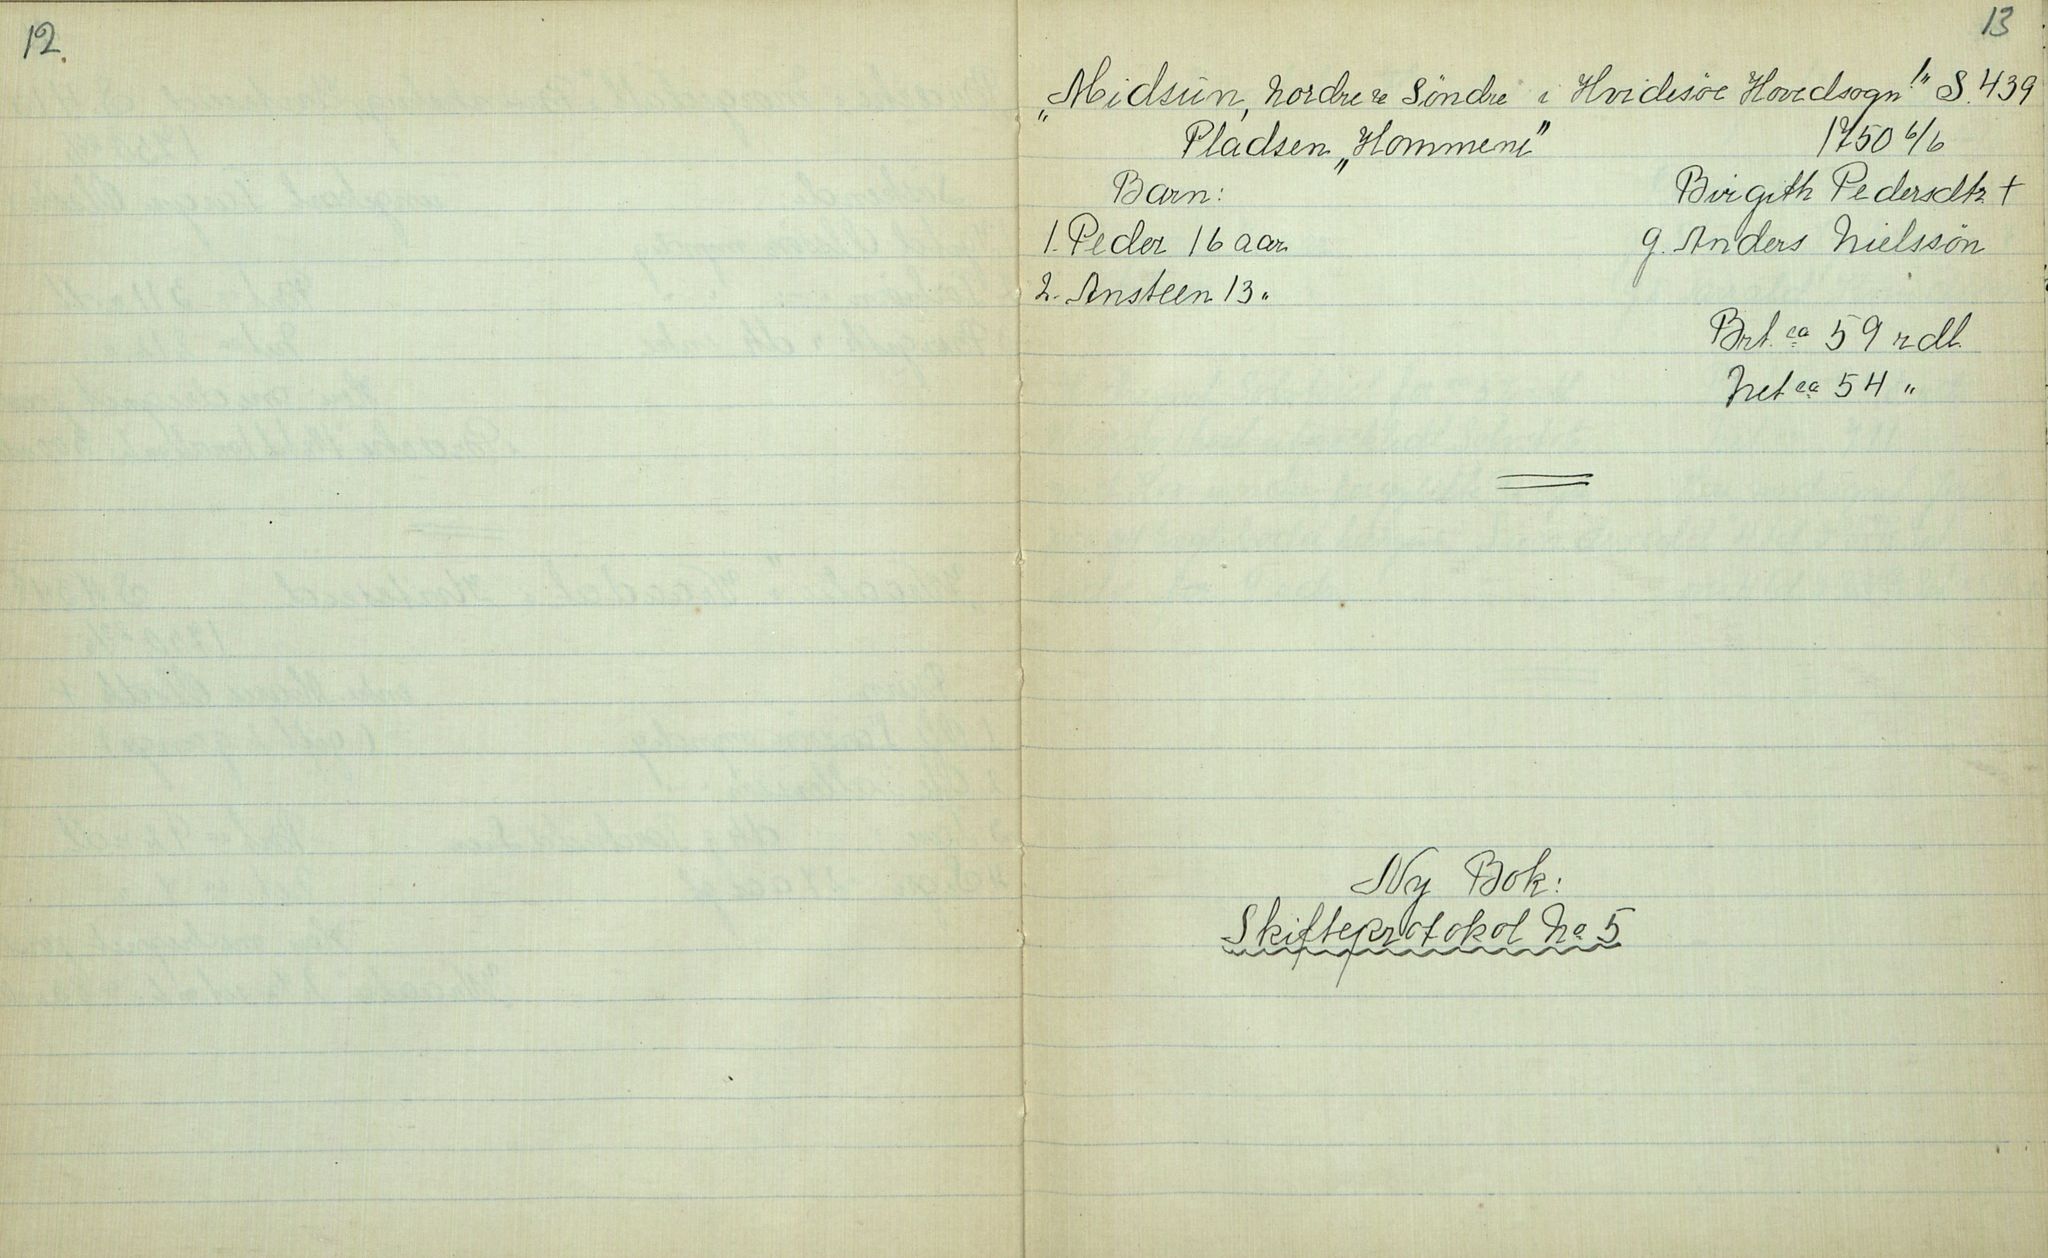 12.
13
„Midsun, Nordre & Söndre i Hvidesöe Hovedsogn!" S. 439
Pladsen „Hommeni" 1750 6/6
Barn: Birgith Pedersdtr †
1. Peder 16 aar g. Anders Nielssön
2. Ansteen 13 "
Brt. ca 59 rdl.
Net ca 54 "
Ny Bok:
Skifteprotokol No 5